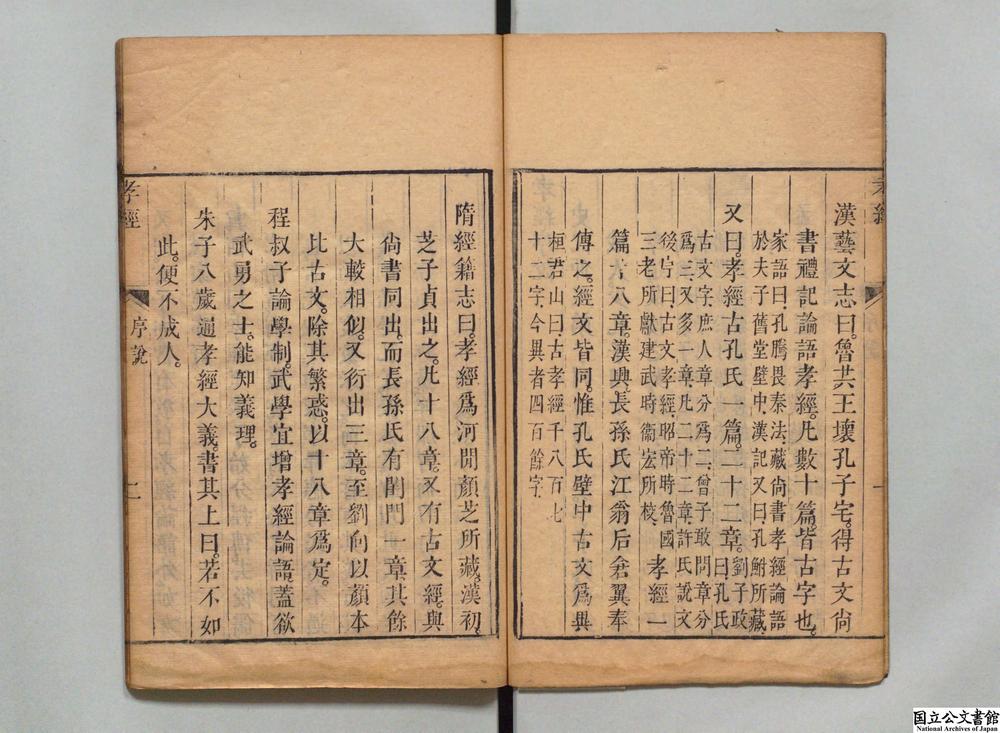 孝經
漢藝文志曰。魯共王壞孔子宅。得古文尚
書禮記論語孝經。凡數十篇。皆古字也。
家語曰。孔騰畏秦法。藏尚書孝經論語
於夫子舊堂壁中。漢記又曰。孔鮒所藏。
又曰。孝經古孔氏一篇。二十二章。劉子政曰。孔氏
古文字。庶人章分爲二。曾子敢問章分
爲三。又多一章。凡二十二章。許氏說文
後序曰。古文孝經。昭帝時魯國
三老所獻。建武時衞宏所校。
孝經一
篇十八章。漢興。長孫氏江翁后倉翼奉
傳之。經文皆同。惟孔氏壁中古文爲異
桓君山曰。古孝經千八百七
十二字。今異者四百餘字。
隋經籍志曰。孝經爲河閒顏芝所藏。漢初。
芝子貞出之。凡十八章。又有古文經。與
尚書同出。而長孫氏有閨門一章。其餘
大較相似。又衍出三章。至劉向以顏本
比古文。除其繁惑。以十八章爲定。
程叔子論學制。武學宜增孝經論語。蓋欲
武勇之士。能知義理。
朱子八歲通孝經大義。書其上曰。若不如
此。便不成人。
孝經
序說
二
国立公文書館
National Archives of Japan